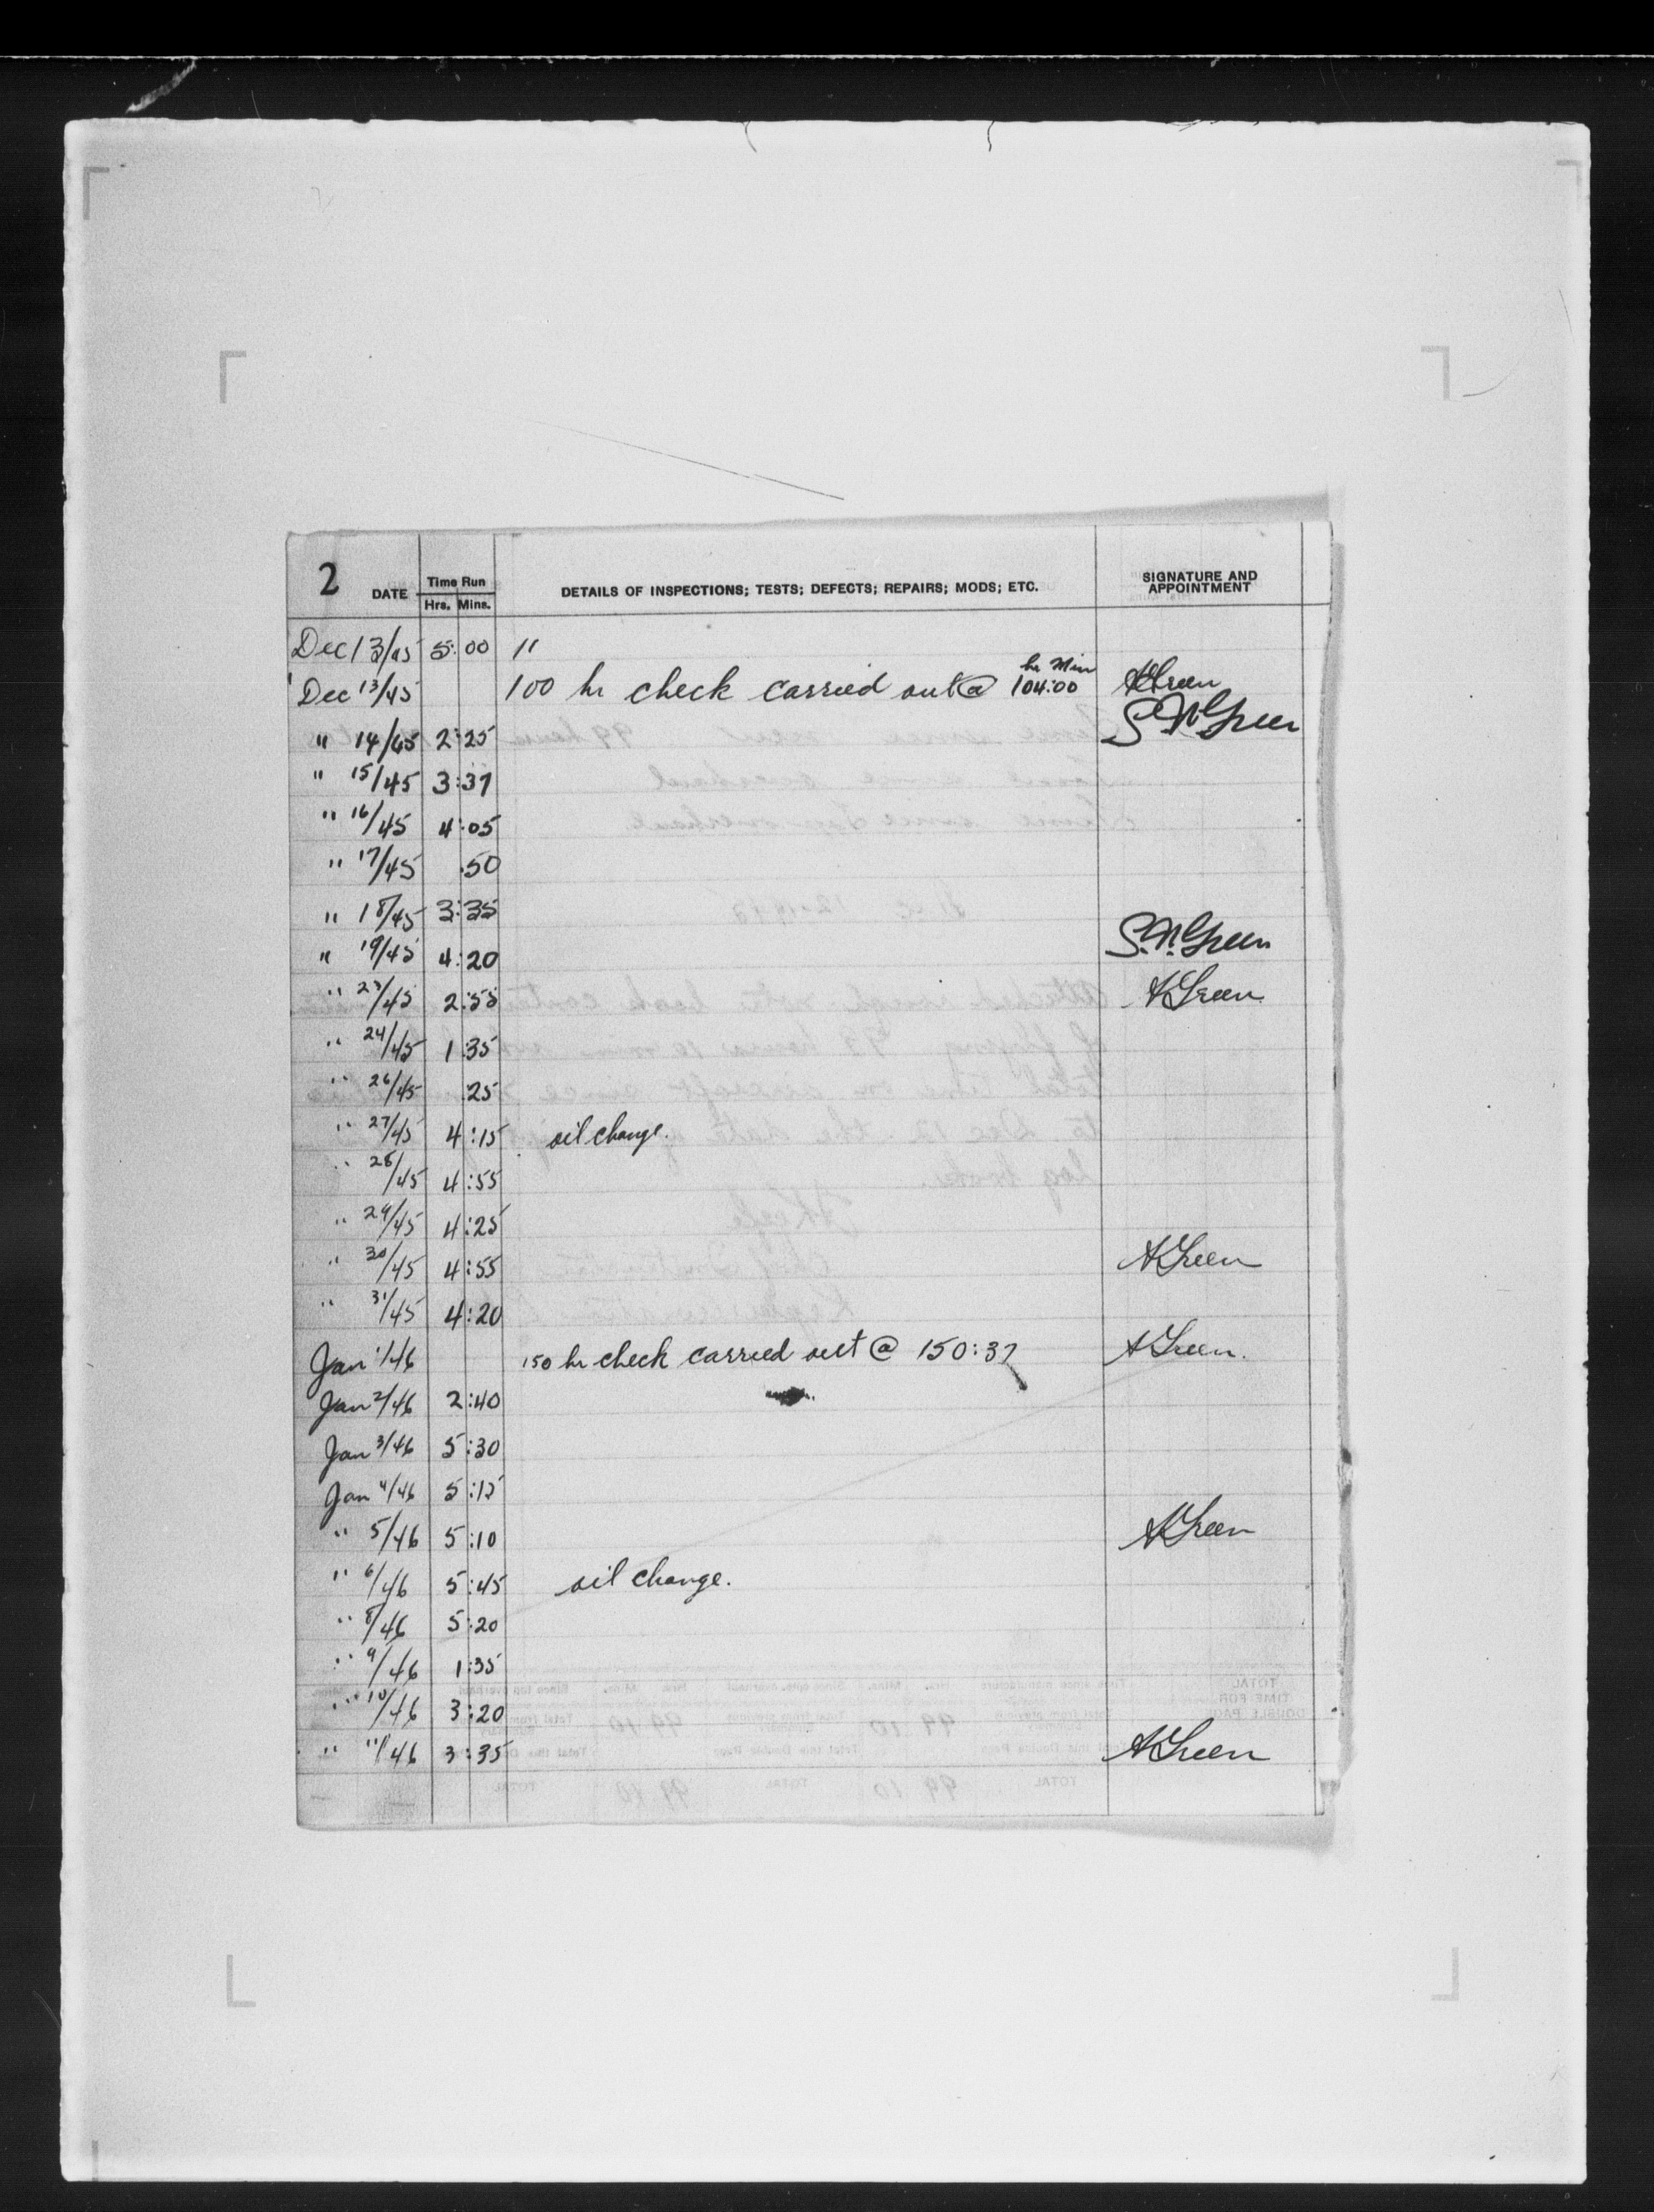 2 DATE Time Run Hrs. Mins. DETAILS OF INSPECTIONS; TESTS; DEFECTS; REPAIRS; MODS; ETC. SIGNATURE AND APPOINTMENT
Dec 13/45 5:00 "
Dec 13/45 100 hr check carried out @ 104:00 hr Min AGreen
" 14/45 2:25 S.N.Green
" 15/45 3:37
" 16/45 4:05
" 17/45 :50
" 18/45 3:35
" 19/45 4:20 S.N.Green
" 23/45 2:55 AGreen
" 24/45 1:35
" 26/45 :25
" 27/45 4:15 oil change.
" 28/45 4:55
" 29/45 4:25
" 30/45 4:55 AGreen
" 31/45 4:20
Jan 1/46 150 hr check carried out @ 150:37 AGreen.
Jan 2/46 2:40
Jan 3/46 5:30
Jan 4/46 5:15
" 5/46 5:10 AGreen
" 6/46 5:45 oil change.
" 8/46 5:20
" 9/46 1:35
" 10/46 3:20
" 11/46 3:35 AGreen